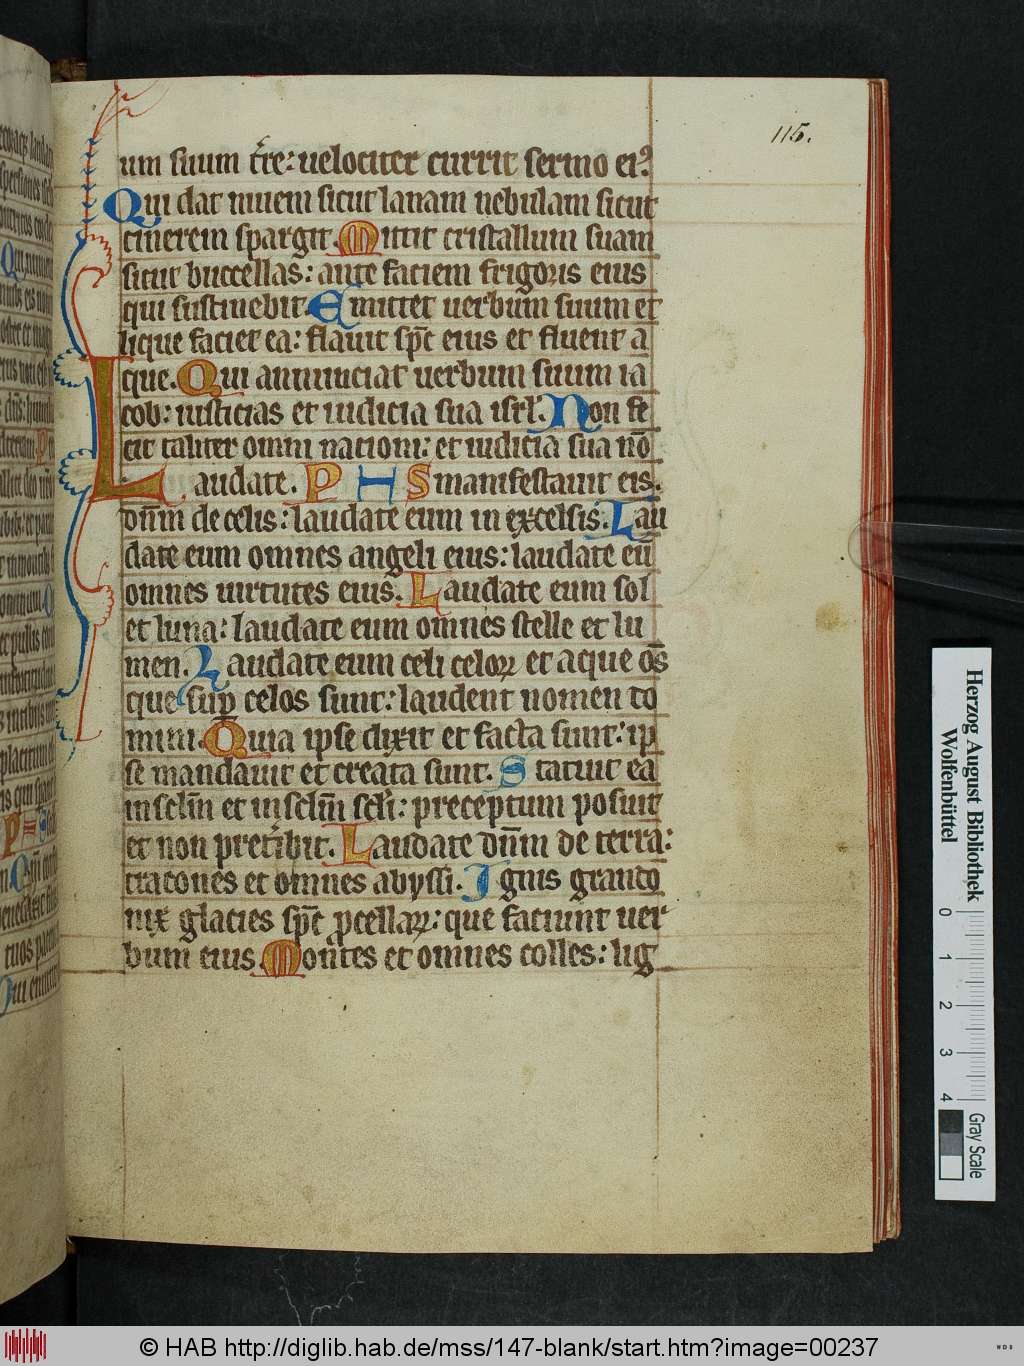 115.
um suum t̄re: velociter currit sermo eiꝰ
Qui dat nivem sicut lanam nebulam sicut
cinerem spargit. Mittit cristallum suam
sicut buccellas: ante faciem frigoris eius
quis sustinebit. Emittet verbum suum et
lique faciet ea: flavit sp̄c eius et fluent a
que. Qui annunciat verbum suum ia
cob: iusticias et iudicia sua isrl̄. Non fe
cit taliter omni nationi: et iudicia sua nō
Laudate. P H S manifestavit eis.
dn̄m de celis: laudate eum in excelsis. Lau
date eum omnes angeli eius: laudate eū
omnes virtutes eius. Laudate eum sol
et luna: laudate eum omnes stelle et lu
men. Laudate eum celi celoꝝ et aque om̄s
que sup̄ celos sunt: laudent nomen do
mini. Quia ipse dixit et facta sunt: ip
se mandavit et creata sunt. Statuit ea
in sclm̄ et in sclm̄ scli̅: preceptum posuit
et non pret̄ibit. Laudate dn̄m de terra:
dracones et omnes abyssi. Ignis grando
nix glacies sp̄c ꝓcellaꝝ: que faciunt ver
bum eius. Montes et omnes colles: lig
Herzog August Bibliothek
Wolfenbüttel
0 1 2 3 4
Gray Scale
© HAB http://diglib.hab.de/mss/147-blank/start.htm?image=00237